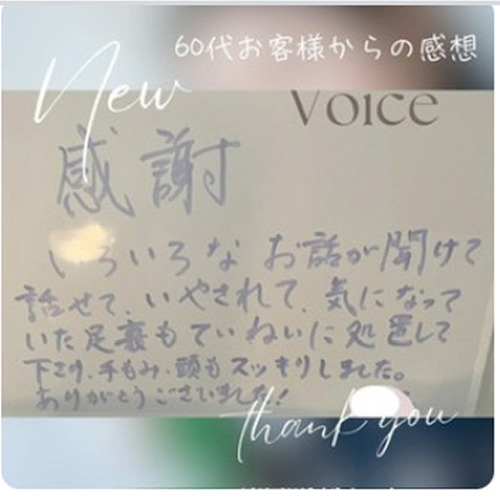 60代お客様からの感想
New
Voice
感謝
いろいろな お話が聞けて
話せて、いやされて、気になって
いた足裏もていねいに処置して
下さり、手もみ、頭もスッキリしました。
ありがとうございました!
thank you